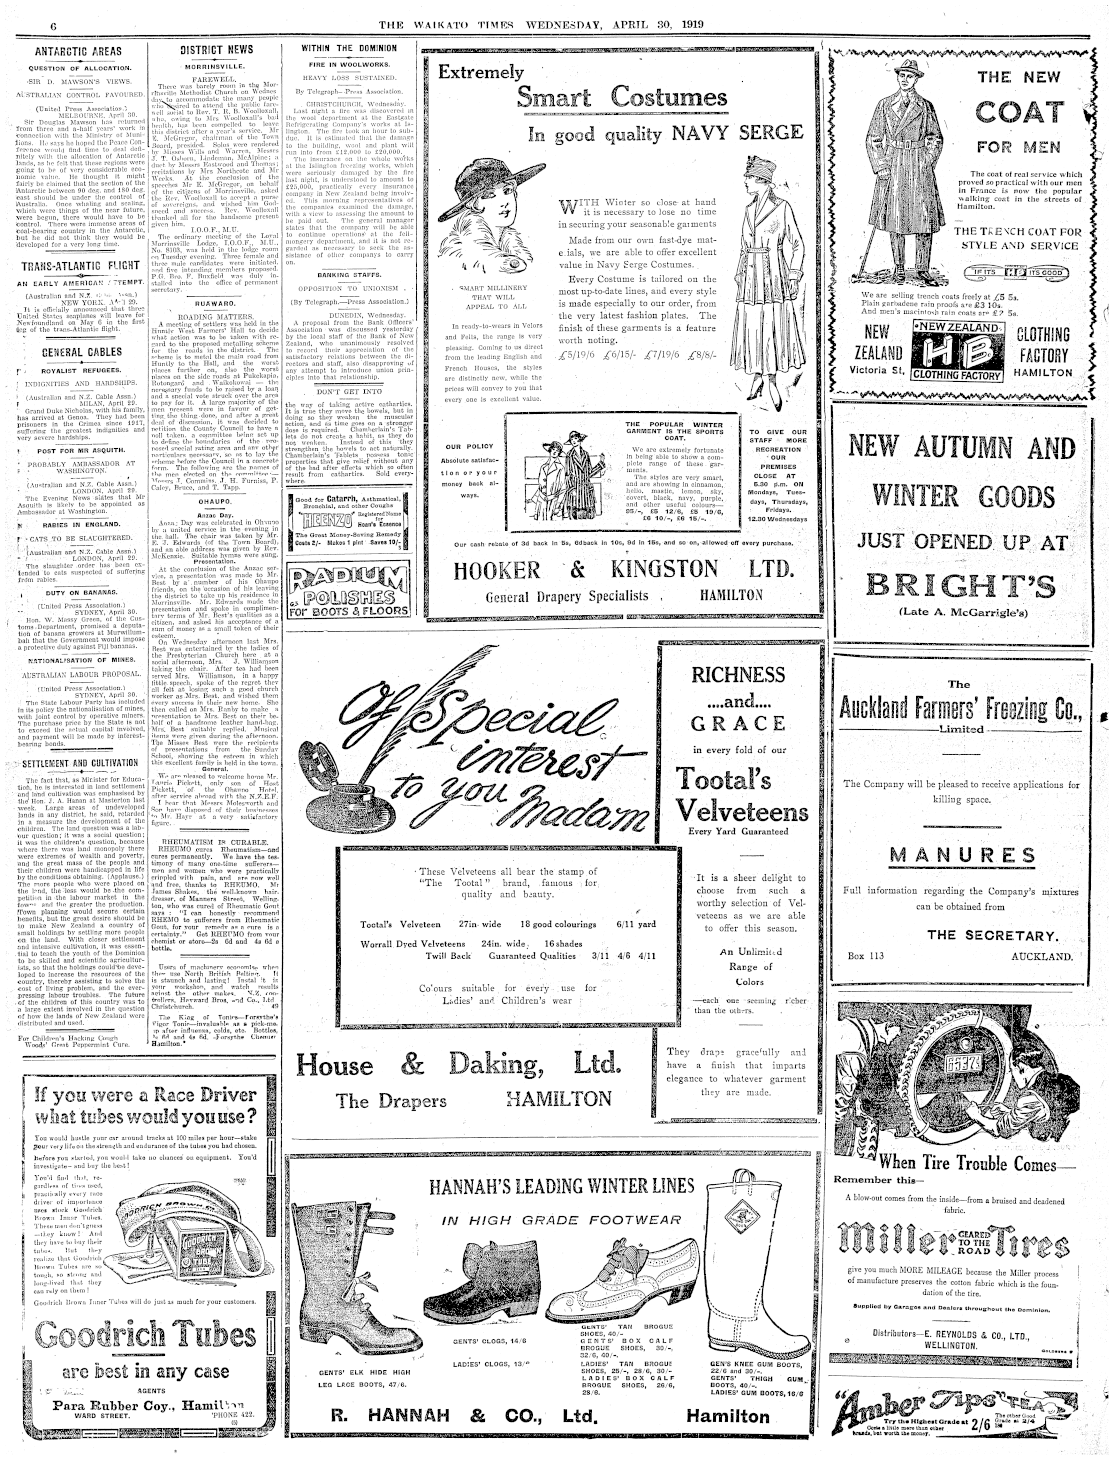 6
THE WAIKATO TIMES WEDNESDAY, APRIL 30, 1919
ANTARCTIC AREAS
QUESTION OF ALLOCATION.
SIR D. MAWSON'S VIEWS.
AUSTRALIAN CONTROL FAVOURED.
(United Press Association.)
MELBOURNE, April 30.
Sir Douglas Mawson has returned
from three and a-half years' work in
connection with the Ministry of Muni-
tions. He says he hoped the Peace Con-
ference would find time to deal defi-
nitely with the allocation of Antarctic
lands, as he felt that these regions were
going to be of very considerable eco-
nomic value. He thought it might
fairly be claimed that the section of the
Antarctic between 90 deg. and 180 deg.
east should be under the control of
Australia. Once whaling and sealing,
which were things of the near future,
were begun, there would have to be
control. There were immense areas of
coal-bearing country in the Antarctic,
but he did not think they would be
developed for a very long time.
TRANS-ATLANTIC FLIGHT
AN EARLY AMERICAN ATTEMPT.
NEW YORK,
It is officially announced that three
United States seaplanes will leave for
Newfoundland on May 6 in the first
leg of the trans-Atlantic flight.
GENERAL CABLES
ROYALIST REFUGEES.
INDIGNITIES AND HARDSHIPS.
(Australian and N.Z. Cable Assn.)
MILAN, April 29.
Grand Duke Nicholas, with his family,
has arrived at Genoa. They had been
prisoners in the Crimea since 1917,
suffering the greatest indignities and
very severe hardships.
POST FOR MR ASQUITH.
PROBABLY AMBASSADOR AT
WASHINGTON.
(Australian and N.Z. Cable Assn.)
LONDON, April 29.
The Evening News states that Mr
Asquith is likely to be appointed as
Ambassador at Washington.
RABIES IN ENGLAND.
CATS TO BE SLAUGHTERED.
(Australian and N.Z. Cable Assn.)
LONDON, April 29.
The slaughter order has been ex-
tended to cats suspected of suffering
from rabies.
DUTY ON BANANAS.
(United Press Association.)
SYDNEY, April 30.
Hon. W. Massy Green, of the Cus-
toms Department, promised a deputa-
tion of banana growers at Murwillum-
bah that the Government would impose
a protective duty against Fiji bananas.
NATIONALISATION OF MINES.
AUSTRALIAN LABOUR PROPOSAL.
(United Press Association.)
SYDNEY, April 30.
The State Labour Party has included
in its policy the nationalisation of mines,
with joint control by operative miners.
The purchase price by the State is not
to exceed the actual capital involved,
and payment will be made by interest-
bearing bonds.
SETTLEMENT AND CULTIVATION
The fact that, as Minister for Educa-
tion, he is interested in land settlement
and land cultivation was emphasised by
the Hon. J. A. Hanan at Masterton last
week. Large areas of undeveloped
lands in any district, he said, retarded
in a measure the development of the
children. The land question was a lab-
our question; it was a social question;
it was the children's question, because
where there was land monopoly there
were extremes of wealth and poverty,
and the great mass of the people and
their children were handicapped in life
by the conditions obtaining. (Applause.)
The more people who were placed on
the land, the less would be the com-
petition in the labour market in the
towns and the greater the production.
Town planning would secure certain
benefits, but the great desire should be
to make New Zealand a country of
small holdings by settling more people
on the land. With closer settlement
and intensive cultivation, it was essen-
tial to teach the youth of the Dominion
to be skilled and scientific agricultur-
ists, so that the holdings could be deve-
loped to increase the resources of the
country, thereby assisting to solve the
cost of living problem, and the ever-
pressing labour troubles. The future
of the children of this country was to
a large extent involved in the question
of how the lands of New Zealand were
distributed and used.
For Children's Hacking Cough
Woods' Great Peppermint Cure.
If you were a Race Driver
what tubes would you use?
You would hustle your car around tracks at 100 miles per hour—stake
your very life on the strength and endurance of the tubes you had chosen.
Before you started, you would take no chances on equipment. You'd
investigate—and buy the best!
You'd find that, re-
gardless of tires used,
practically every race
driver of importance
uses stock Goodrich
Brown Inner Tubes.
These men don't guess
—they know! And
they have to buy their
tubes. But they
realize that Goodrich
Brown Tubes are so
tough, so strong and
long-lived that they
can rely on them!
Goodrich Brown Inner Tubes will do just as much for your customers.
Goodrich Tubes
are best in any case
AGENTS
Para Rubber Coy., Hamilton
WARD STREET. 'PHONE 422.
DISTRICT NEWS
MORRINSVILLE.
FAREWELL.
There was barely room in the Mor-
rinsville Methodist Church on Wednes-
day to accommodate the many people
who desired to attend the public fare-
well social to Rev. T. R. B. Woolloxall,
who, owing to Mrs Woolloxall's bad
health, has been compelled to leave
this district after a year's service. Mr
E. McGregor, chairman of the Town
Board, presided. Solos were rendered
by Misses Wills and Warren, Messrs
J. T. Osborn, Lindeman, McAlpine; a
duet by Messrs Eastwood and Thomas;
recitations by Mrs Northcote and Mr
Weeks. At the conclusion of the
speeches Mr E. McGregor, on behalf
of the citizens of Morrinsville, asked
the Rev. Woolloxall to accept a purse
of sovereigns, and wished him God-
speed and success. Rev. Woolloxall
thanked all for the handsome present
given him.
I.O.O.F., M.U.
The ordinary meeting of the Loyal
Morrinsville Lodge, I.O.O.F., M.U.,
No. 8303, was held in the lodge room
on Tuesday evening. Three female and
three male candidates were initiated,
and five intending members proposed.
P.G. Bro. F. Buxfield was duly in-
stalled into the office of permanent
secretary.
RUAWARO.
ROADING MATTERS.
A meeting of settlers was held in the
Rimuie West Farmers' Hall to decide
what action was to be taken with re-
gard to the proposed metalling scheme
for the roads in the district. The
scheme is to metal the main road from
Huntly to the hall, and the worst
places further on, also the worst
places on the side roads at Pukekapia,
Rotongaro and Waikokowai — the
necessary funds to be raised by a loan
and a special vote struck over the area
to pay for it. A large majority of the
men present were in favour of get-
ting the thing done, and after a great
deal of discussion, it was decided to
petition the County Council to have a
poll taken, a committee being set up
to define the boundaries of the pro-
posed special rating area and any other
particulars necessary, so as to lay the
scheme before the Council in a concrete
form. The following are the names of
the men elected on the committee:—
Messrs I. Commins, J. H. Furniss, P.
Caley, Bruce, and T. Tapp.
OHAUPO.
Anzac Day.
Anzac Day was celebrated in Ohaupo
by a united service in the evening in
the hall. The chair was taken by Mr.
E. J. Edwards (of the Town Board),
and an able address was given by Rev.
McKenzie. Suitable hymns were sung.
Presentation.
At the conclusion of the Anzac ser-
vice, a presentation was made to Mr.
Best by a number of his Ohaupo
friends, on the occasion of his leaving
the district to take up his residence in
Morrinsville. Mr. Edwards made the
presentation and spoke in complimen-
tary terms of Mr. Best's qualities as a
citizen, and asked his acceptance of a
sum of money as a small token of their
esteem.
On Wednesday afternoon last Mrs.
Best was entertained by the ladies of
the Presbyterian Church here at a
social afternoon, Mrs. J. Williamson
taking the chair. After tea had been
served Mrs. Williamson, in a happy
little speech, spoke of the regret they
all felt at losing such a good church
worker as Mrs. Best, and wished them
every success in their new home. She
then called on Mrs. Ranby to make a
presentation to Mrs. Best on their be-
half of a handsome leather handbag.
Mrs. Best suitably replied. Musical
items were given during the afternoon.
The Misses Best were the recipients
of presentations from the Sunday
School, showing the esteem in which
this excellent family is held in the town.
General.
We are pleased to welcome home Mr.
Laurie Pickett, only son of Host
Pickett, of the Ohaupo Hotel,
after service abroad with the N.Z.E.F.
I hear that Messrs Molesworth and
Son have disposed of their businesses
to Mr. Haye at a very satisfactory
figure.
RHEUMATISM IS CURABLE.
RHEUMO cures Rheumatism—and
cures permanently. We have the tes-
timony of many one-time sufferers—
men and women who were practically
crippled with pain, and are now well
and free, thanks to RHEUMO. Mr
James Shakes, the well-known hair-
dresser, of Manners Street, Welling-
ton, who was cured of Rheumatic Gout
says: "I can honestly recommend
RHEMO to sufferers from Rheumatic
Gout, for your remedy as a cure is a
certainty." Get RHEUMO from your
chemist or store—2s 6d and 4s 6d a
bottle.
Users of machinery economise when
they use North British Belting. It
is staunch and lasting! Instal it in
your workshop, and watch results
against the other makes. N.Z. con-
trollers, Hayward Bros. and Co., Ltd.
Christchurch. 49
The King of Tonics—Forsythe's
Vigor Tonic—invaluable as a pick-me-
up after influenza, colds, etc. Bottles,
2s 6d and 4s 6d. Forsythe Chemist
Hamilton.*
WITHIN THE DOMINION
FIRE IN WOOLWORKS.
HEAVY LOSS SUSTAINED.
By Telegraph—Press Association.
CHRISTCHURCH, Wednesday.
Last night a fire was discovered in
the wool department at the Eastgate
Refrigerating Company's works at Is-
lington. The fire took an hour to sub-
due. It is estimated that the damage
to the building, wool and plant will
run into from £12,000 to £20,000.
The insurance on the whole works
at the Islington freezing works, which
were seriously damaged by the fire
last night, is understood to amount to
£25,000, practically every insurance
company in New Zealand being involv-
ed. This morning representatives of
the companies examined the damage,
with a view to assessing the amount to
be paid out. The general manager
states that the company will be able
to continue operations at the fell-
mongery department, and it is not re-
garded as necessary to seek the as-
sistance of other companys to carry
on.
BANKING STAFFS.
OPPOSITION TO UNIONISM.
(By Telegraph.—Press Association.)
DUNEDIN, Wednesday.
A proposal from the Bank Officers'
Association was discussed yesterday
by the local staff of the Bank of New
Zealand, who unanimously resolved
to record their appreciation of the
satisfactory relations between the di-
rectors and staff, also disapproving of
any attempt to introduce union prin-
ciples into that relationship.
DON'T GET INTO
the way of taking active cathartics.
It is true they move the bowels, but in
doing so they weaken the muscular
action, and as time goes on a stronger
dose is required. Chamberlain's Tab-
lets do not create a habit, as they do
not weaken. Instead of this they
strengthen the bowels to act naturally.
Chamberlain's Tablets possess tonic
properties that give relief without any
of the bad after effects which so often
result from cathartics. Sold every-
where.
Good for Catarrh, Asthmatical,
Bronchial, and other Coughs
HEENZO
Registered Name
for
Hean's Essence
The Great Money-Saving Remedy
Costs 2/- Makes 1 pint Saves 10/-
RADIUM
POLISHES
FOR BOOTS & FLOORS
Extremely
Smart Costumes
In good quality NAVY SERGE
WITH Winter so close at hand
it is necessary to lose no time
in securing your seasonable garments
Made from our own fast-dye mat-
erials, we are able to offer excellent
value in Navy Serge Costumes.
Every Costume is tailored on the
most up-to-date lines, and every style
is made especially to our order, from
the very latest fashion plates. The
finish of these garments is a feature
worth noting.
£5/19/6 £6/15/- £7/19/6 £8/8/-
SMART MILLINERY
THAT WILL
APPEAL TO ALL
In ready-to-wears in Velors
and Felts, the range is very
pleasing. Coming to us direct
from the leading English and
French Houses, the styles
are distinctly now, while the
prices will convey to you that
every one is excellent value.
OUR POLICY
Absolute satisfac-
tion or your
money back al-
ways.
THE POPULAR WINTER
GARMENT IS THE SPORTS
COAT.
We are extremely fortunate
in being able to show a com-
plete range of these gar-
ments.
The styles are very smart,
and are showing in cinnamon,
helio, mastic, lemon, sky,
covert, black, navy, purple,
and other useful colours—
85/-, £5 12/6, £5 19/6,
£6 10/-, £6 15/-.
TO GIVE OUR
STAFF MORE
RECREATION
OUR
PREMISES
CLOSE AT
5.30 p.m. ON
Mondays, Tues-
days, Thursdays,
Fridays.
12.30 Wednesdays
Our cash rebate of 3d back in 5s, 6dback in 10s, 9d in 15s, and so on, allowed off every purchase.
HOOKER & KINGSTON LTD.
General Drapery Specialists, HAMILTON
Of Special
interest
to you
Madam
These Velveteens all bear the stamp of
"The Tootal" brand, famous for
quality and beauty.
Tootal's Velveteen 27in. wide 18 good colourings 6/11 yard
Worrall Dyed Velveteens 24in. wide, 16 shades
Twill Back Guaranteed Qualities 3/11 4/6 4/11
Colours suitable for every use for
Ladies' and Children's wear
House & Daking, Ltd.
The Drapers HAMILTON
RICHNESS
....and....
GRACE
in every fold of our
Tootal's
Velveteens
Every Yard Guaranteed
It is a sheer delight to
choose from such a
worthy selection of Vel-
veteens as we are able
to offer this season.
An Unlimited
Range of
Colors
—each one seeming richer
than the others.
They drape gracefully and
have a finish that imparts
elegance to whatever garment
they are made.
HANNAH'S LEADING WINTER LINES
IN HIGH GRADE FOOTWEAR
GENTS' ELK HIDE HIGH
LEG LACE BOOTS, 47/6.
GENTS' CLOGS, 14/6
LADIES' CLOGS,
GENTS' TAN BROGUE
SHOES, 40/-
GENTS' BOX CALF
BROGUE SHOES, 30/-,
32/6, 40/-.
LADIES' TAN BROGUE
SHOES, 25/-, 28/6, 30/-
LADIES' BOX CALF
BROGUE SHOES, 26/6,
28/6.
GEN'S KNEE GUM BOOTS,
22/6 and 30/-.
GENTS' THIGH GUM
BOOTS, 40/-.
LADIES' GUM BOOTS, 16/6
R. HANNAH & CO., Ltd. Hamilton
THE NEW
COAT
FOR MEN
The coat of real service which
proved so practical with our men
in France is now the popular
walking coat in the streets of
Hamilton.
THE TRENCH COAT FOR
STYLE AND SERVICE
IF IT'S HB IT'S GOOD
We are selling trench coats freely at £5 5s.
Plain garbardene rain proofs are £3 10s.
And men's macintosh rain coats are £2 5s.
NEW
ZEALAND
Victoria St.
NEW ZEALAND
HB
CLOTHING FACTORY
CLOTHING
FACTORY
HAMILTON
NEW AUTUMN AND
WINTER GOODS
JUST OPENED UP AT
BRIGHT'S
(Late A. McGarrigle's)
The
Auckland Farmers' Freezing Co.,
Limited
The Company will be pleased to receive applications for
killing space.
MANURES
Full information regarding the Company's mixtures
can be obtained from
THE SECRETARY.
Box 113 AUCKLAND.
When Tire Trouble Comes—
Remember this—
A blow-out comes from the inside—from a bruised and deadened
fabric.
Miller GEARED TO THE ROAD Tires
give you much MORE MILEAGE because the Miller process
of manufacture preserves the cotton fabric which is the foun-
dation of the tire.
Supplied by Garages and Dealers throughout the Dominion.
Distributors—E. REYNOLDS & CO., LTD.,
WELLINGTON.
"Amber Tips" TEA
Try the Highest Grade at 2/6
The other Good
Grade is at 2/4
Costs a little more than other
brands, but worth the money.